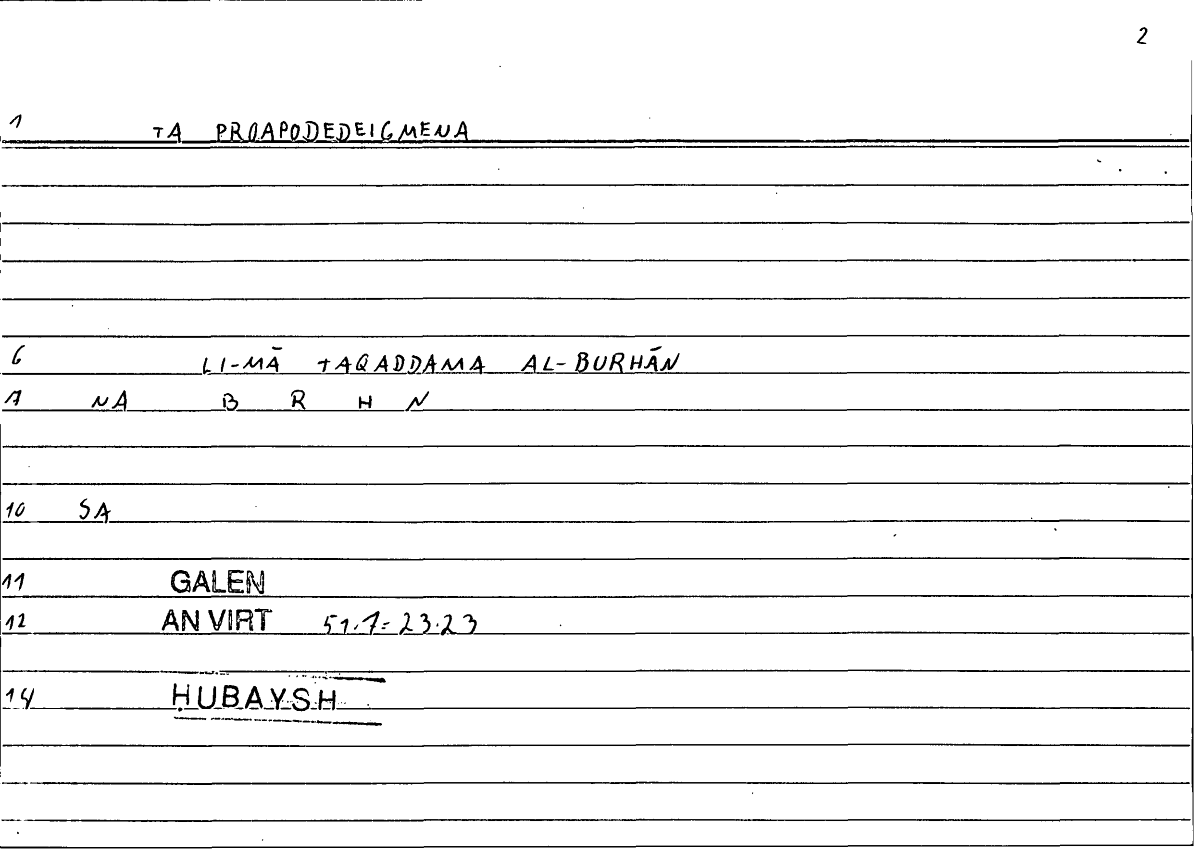 2
1 TA PROAPODEDEIGMENA
6 LI-MĀ TAQADDAMA AL-BURHĀN
7 NA B R H N
10 SA
11 GALEN
12 AN VIRT 51.7=23.23
14 ḤUBAYSH